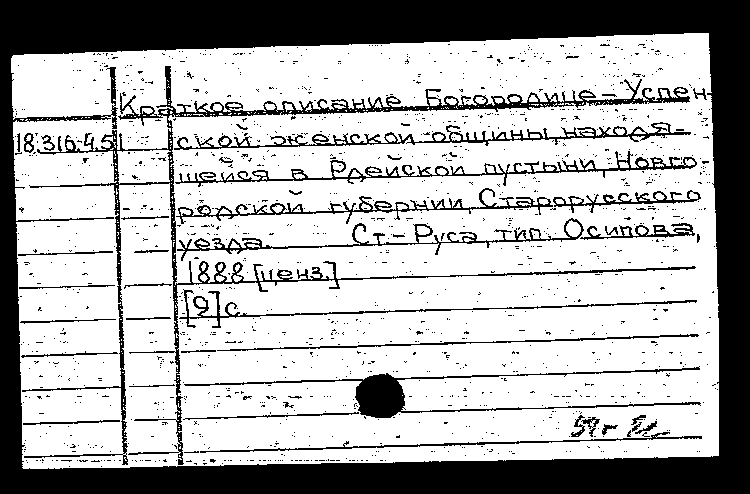 Краткое описание Богородице-Успен-
18.316.4.51 ской женской общины, находя-
щейся в Рдейской пустыни, Новго-
родской губернии, Старорусского
уезда. Ст-Руса, тип. Осипова,
1888 [ценз.]
[9] с.
59г